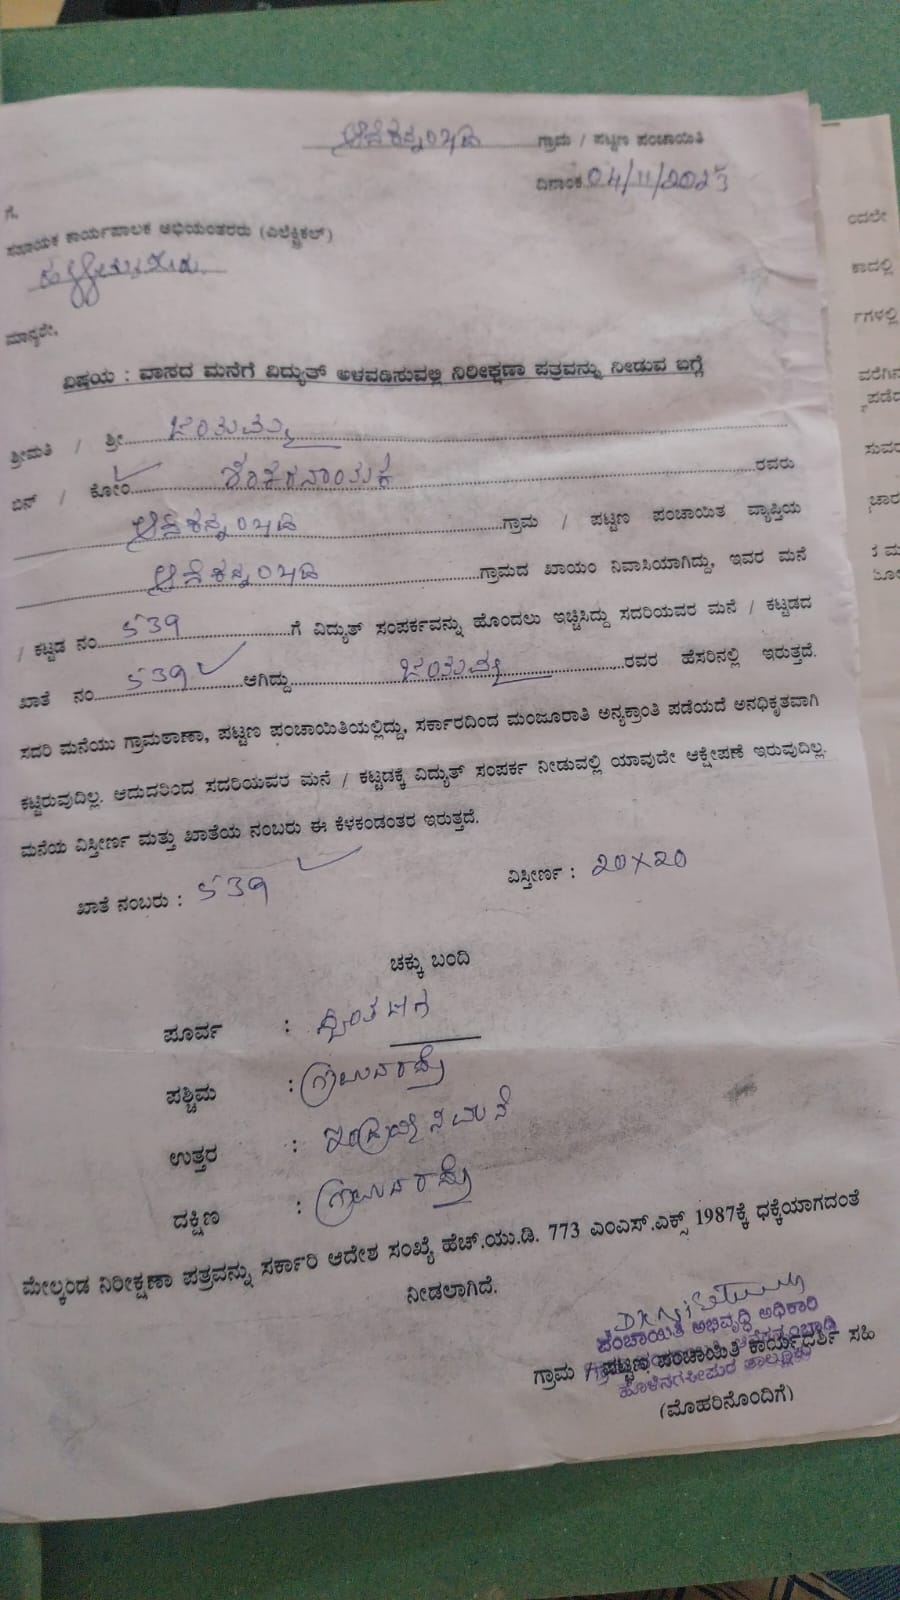 ಆನೆಕನ್ನಂಬಾಡಿ ಗ್ರಾಮ / ಪಟ್ಟಣ ಪಂಚಾಯಿತಿ
ದಿನಾಂಕ 04/11/2023
ಗೆ,
ಸಹಾಯಕ ಕಾರ್ಯಪಾಲಕ ಅಭಿಯಂತರರು (ಎಲೆಕ್ಟ್ರಿಕಲ್)
ಮಾನ್ಯರೇ,
ವಿಷಯ : ವಾಸದ ಮನೆಗೆ ವಿದ್ಯುತ್ ಅಳವಡಿಸುವಲ್ಲಿ ನಿರೀಕ್ಷಣಾ ಪತ್ರವನ್ನು ನೀಡುವ ಬಗ್ಗೆ
ಶ್ರೀಮತಿ / ಶ್ರೀ ಜಯಮ್ಮ
ಬಿನ್ / ಕೋಂ ರವರು
ಆನೆಕನ್ನಂಬಾಡಿ ಗ್ರಾಮ / ಪಟ್ಟಣ ಪಂಚಾಯಿತ ವ್ಯಾಪ್ತಿಯ
ಆನೆಕನ್ನಂಬಾಡಿ ಗ್ರಾಮದ ಖಾಯಂ ನಿವಾಸಿಯಾಗಿದ್ದು, ಇವರ ಮನೆ
/ ಕಟ್ಟಡ ನಂ 539 ಗೆ ವಿದ್ಯುತ್ ಸಂಪರ್ಕವನ್ನು ಹೊಂದಲು ಇಚ್ಚಿಸಿದ್ದು ಸದರಿಯವರ ಮನೆ / ಕಟ್ಟಡದ
ಖಾತೆ ನಂ 539 ಆಗಿದ್ದು ಜಯಮ್ಮ ರವರ ಹೆಸರಿನಲ್ಲಿ ಇರುತ್ತದೆ.
ಸದರಿ ಮನೆಯು ಗ್ರಾಮಠಾಣಾ, ಪಟ್ಟಣ ಪಂಚಾಯಿತಿಯಲ್ಲಿದ್ದು, ಸರ್ಕಾರದಿಂದ ಮಂಜೂರಾತಿ ಅನ್ಯಕ್ರಾಂತಿ ಪಡೆಯದೆ ಅನಧಿಕೃತವಾಗಿ
ಕಟ್ಟಿರುವುದಿಲ್ಲ. ಆದುದರಿಂದ ಸದರಿಯವರ ಮನೆ / ಕಟ್ಟಡಕ್ಕೆ ವಿದ್ಯುತ್ ಸಂಪರ್ಕ ನೀಡುವಲ್ಲಿ ಯಾವುದೇ ಆಕ್ಷೇಪಣೆ ಇರುವುದಿಲ್ಲ.
ಮನೆಯ ವಿಸ್ತೀರ್ಣ ಮತ್ತು ಖಾತೆಯ ನಂಬರು ಈ ಕೆಳಕಂಡಂತರ ಇರುತ್ತದೆ.
ಖಾತೆ ನಂಬರು : 539 ವಿಸ್ತೀರ್ಣ : 20X20
ಚಕ್ಕು ಬಂದಿ
ಪೂರ್ವ : ಸ್ವಂತ ಜಾಗ
ಪಶ್ಚಿಮ : ಗ್ರಾಮದ ರಸ್ತೆ
ಉತ್ತರ : ಮನೆ
ದಕ್ಷಿಣ : ಗ್ರಾಮದ ರಸ್ತೆ
ಮೇಲ್ಕಂಡ ನಿರೀಕ್ಷಣಾ ಪತ್ರವನ್ನು ಸರ್ಕಾರಿ ಆದೇಶ ಸಂಖ್ಯೆ ಹೆಚ್.ಯು.ಡಿ. 773 ಎಂಎಸ್.ಎಕ್ಸ್ 1987ಕ್ಕೆ ಧಕ್ಕೆಯಾಗದಂತೆ
ನೀಡಲಾಗಿದೆ.
ಪಂಚಾಯಿತಿ ಅಭಿವೃದ್ಧಿ ಅಧಿಕಾರಿ
ಗ್ರಾಮ / ಪಟ್ಟಣ ಪಂಚಾಯಿತಿ ಕಾರ್ಯದರ್ಶಿ ಸಹಿ
ಹೊಳೆನರಸೀಪುರ ತಾಲ್ಲೂಕು
(ಮೊಹರಿನೊಂದಿಗೆ)